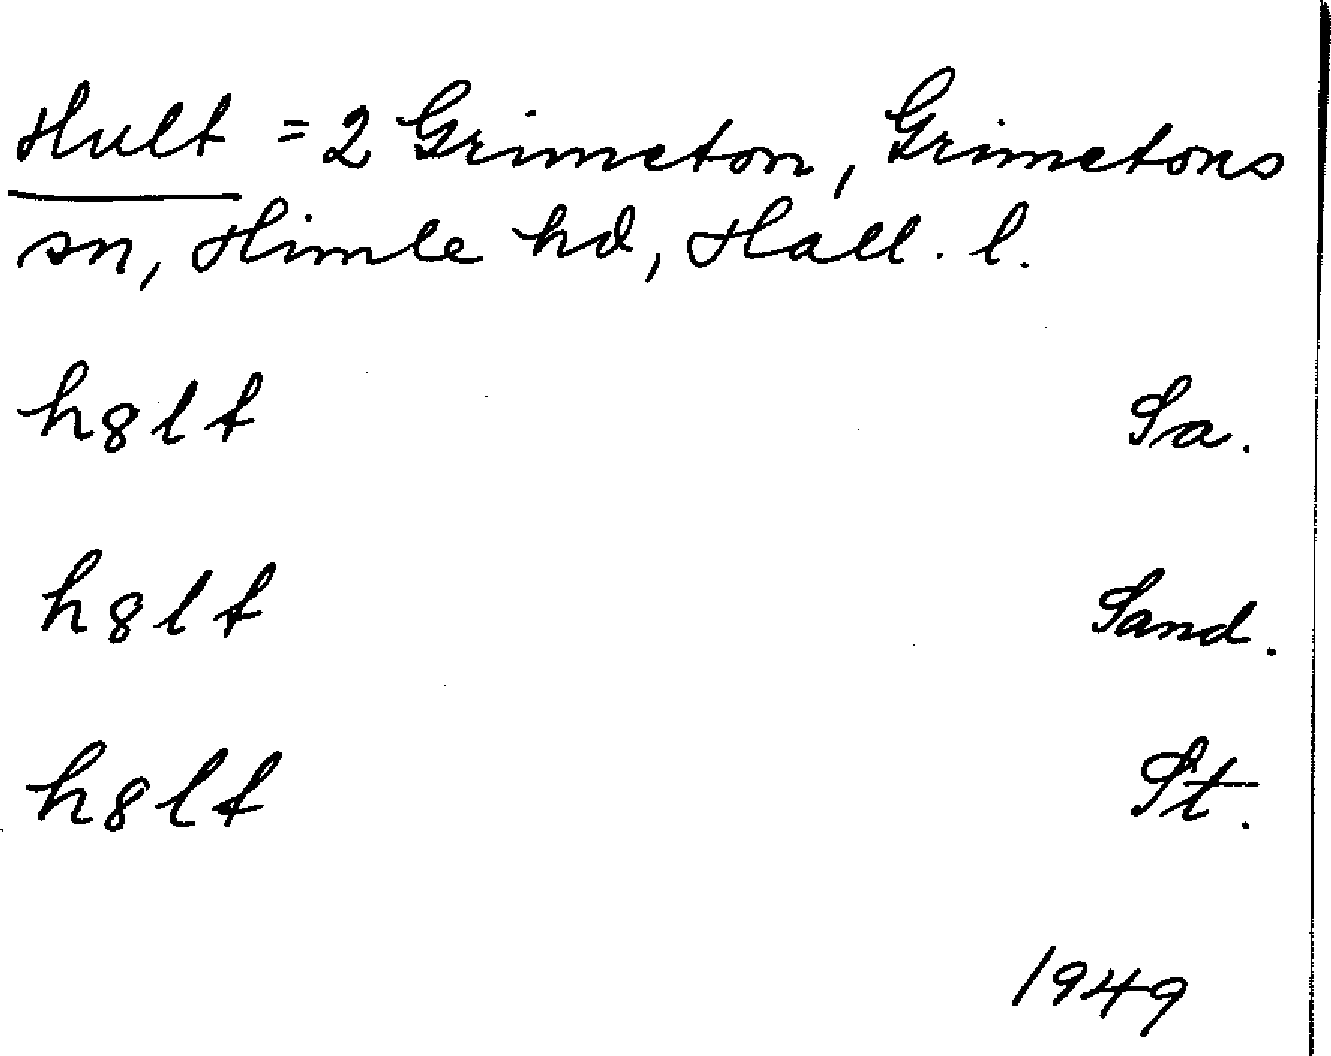 Hult = 2 Grimeton, Grimetons
sn, Himle hd, Hall. l.
h8lt Sa.
h8lt Sand.
h8lt St.
1949